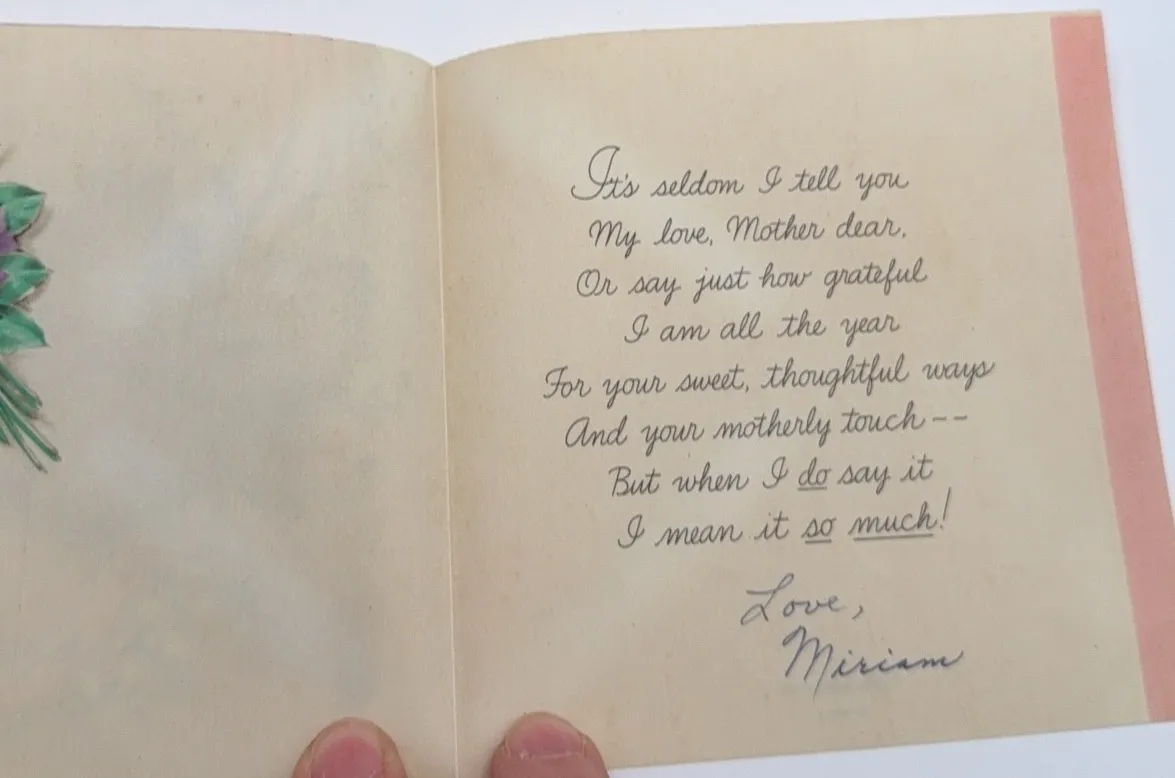 It's seldom I tell you
My love, Mother dear,
Or say just how grateful
I am all the year
For your sweet, thoughtful ways
And your motherly touch --
But when I do say it
I mean it so much!
Love,
Miriam